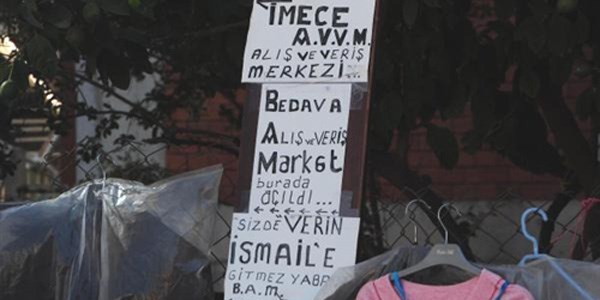 İMECE
A.V.V.M.
ALIŞ VE VERİŞ
MERKEZİ...
BEDAVA
ALIŞ ve VERİŞ
Market
burada
açıldı...
SİZDE VERİN
İSMAİL'E
GİTMEZ YABA
B.A.M.